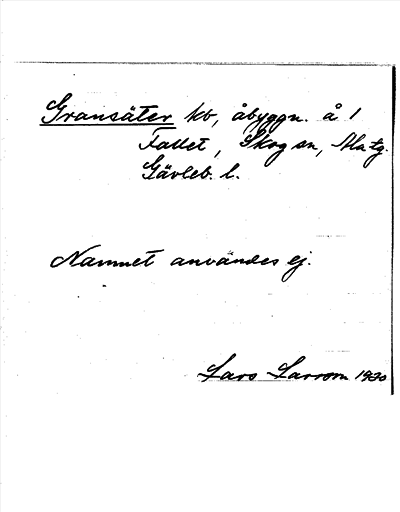 Gransäter kb, åbyggn. å 1
Fallet, Skog sn, Ala tg.
Gävleb. l.
Namnet användes ej.
Lars Larsson 1930